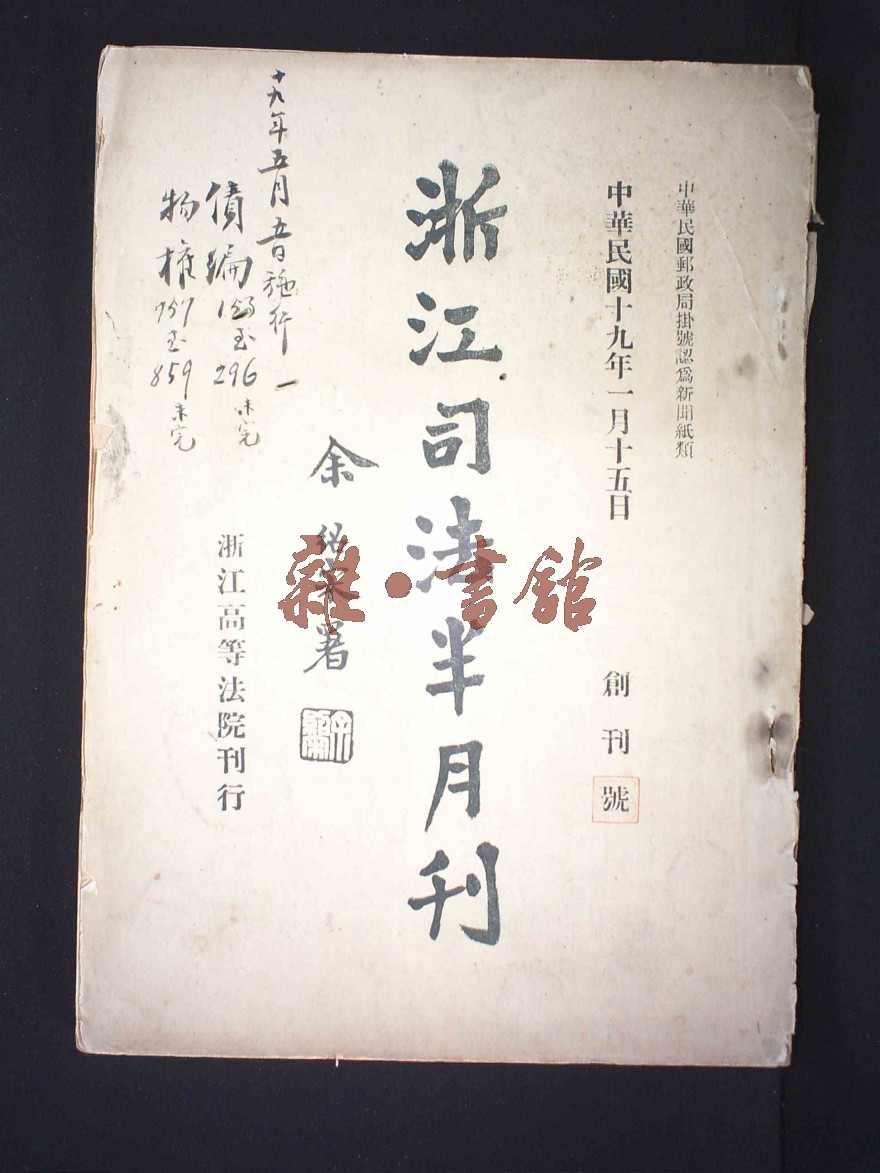 中華民國郵政局掛號認爲新聞紙類
中華民國十九年一月十五日
創刊號
浙江司法半月刊
余紹宋署
浙江高等法院刊行
十九年五月五日施行
債編 153至296 未完
物權 757至859 未完
雜·書館